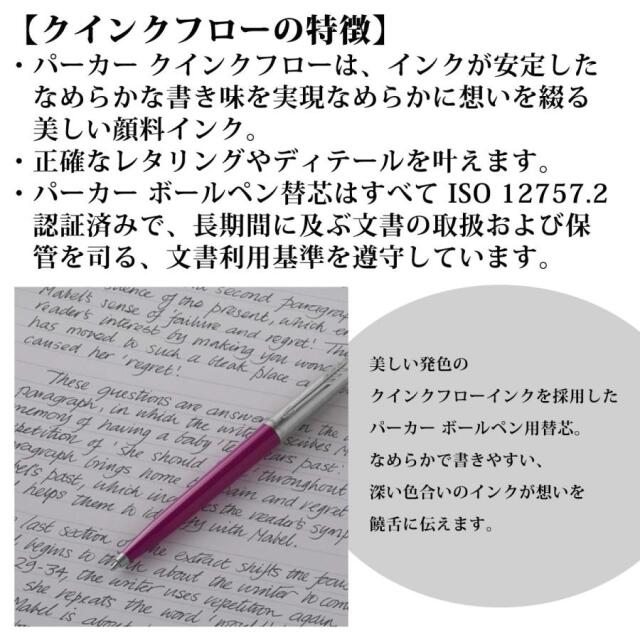 【クインクフローの特徴】
・パーカー クインクフローは、インクが安定した
なめらかな書き味を実現なめらかに想いを綴る
美しい顔料インク。
・正確なレタリングやディテールを叶えます。
・パーカー ボールペン替芯はすべて ISO 12757.2
認証済みで、長期間に及ぶ文書の取扱および保
管を司る、文書利用基準を遵守しています。
second paragraph
Mabel's sense of the present, which
reader's interest by making you
has moved to such a bleak place
caused her 'regret!
These questions are answered in the
paragraph, in which the writer
memory of having a baby years past
'she should throughout
paragraph brings home and regret
past, which the reader's
helps them to with Mabel.
last section of the extract shifts the focus
begins to think about the writer to
29-34, the writer uses repetition again
she repeats the word
Mabel is about
美しい発色の
クインクフローインクを採用した
パーカー ボールペン用替芯。
なめらかで書きやすい、
深い色合いのインクが想いを
饒舌に伝えます。